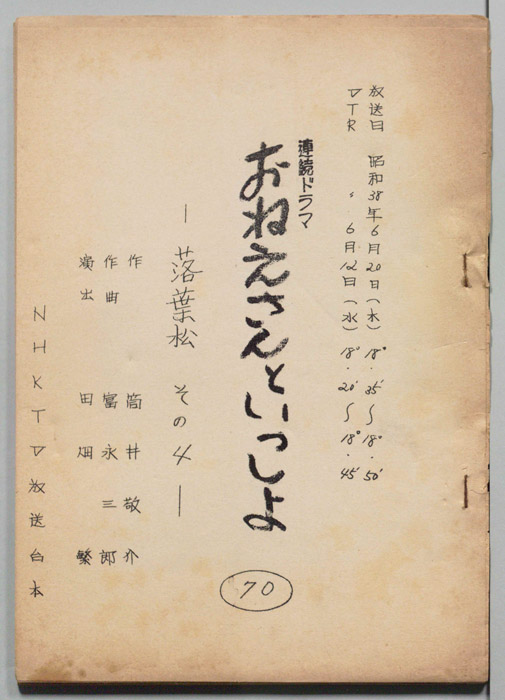 放送日 昭和38年6月20日(木) 18°・35'〜18°・50'
VTR 〃 6月12日(水) 18°・20'〜18°・45'
連続ドラマ
おねえさんといっしょ
70
―落葉松 その4―
作 筒井敬介
作曲 冨永三郎
演出 田畑繁
NHKTV放送台本